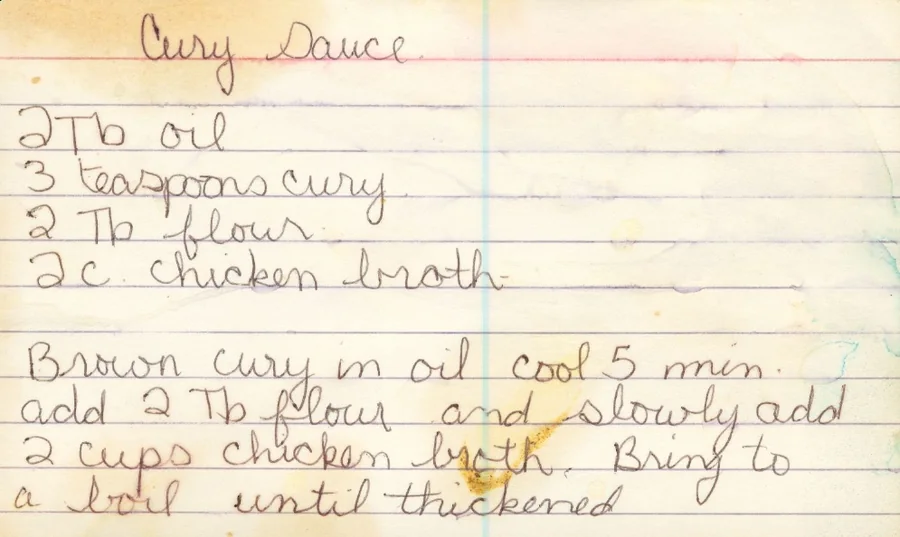 Cury Sauce
2 Tb oil
3 teaspoons cury
2 Tb flour
2 c. chicken broth
Brown cury in oil cool 5 min.
add 2 Tb flour and slowly add
2 cups chicken broth. Bring to
a boil until thickened